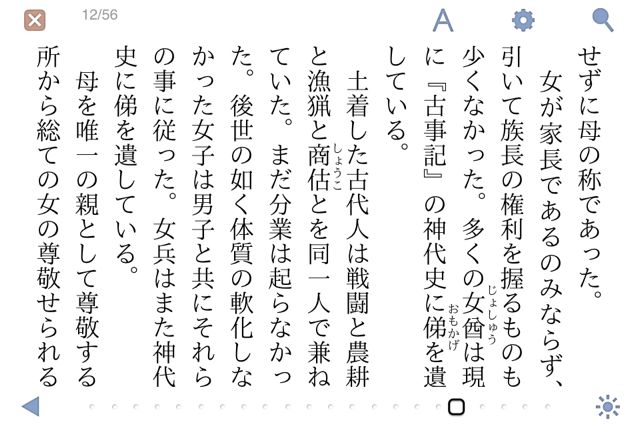 12/56
A
せずに母の称であった。
女が家長であるのみならず、
引いて族長の権利を握るものも
少くなかった。多くの女酋じょしゅうは現
に『古事記』の神代史に俤おもかげを遺
している。
土着した古代人は戦闘と農耕
と漁猟と商估しょうことを同一人で兼ね
ていた。まだ分業は起らなかっ
た。後世の如く体質の軟化しな
かった女子は男子と共にそれら
の事に従った。女兵はまた神代
史に俤を遺している。
母を唯一の親として尊敬する
所から総ての女の尊敬せられる